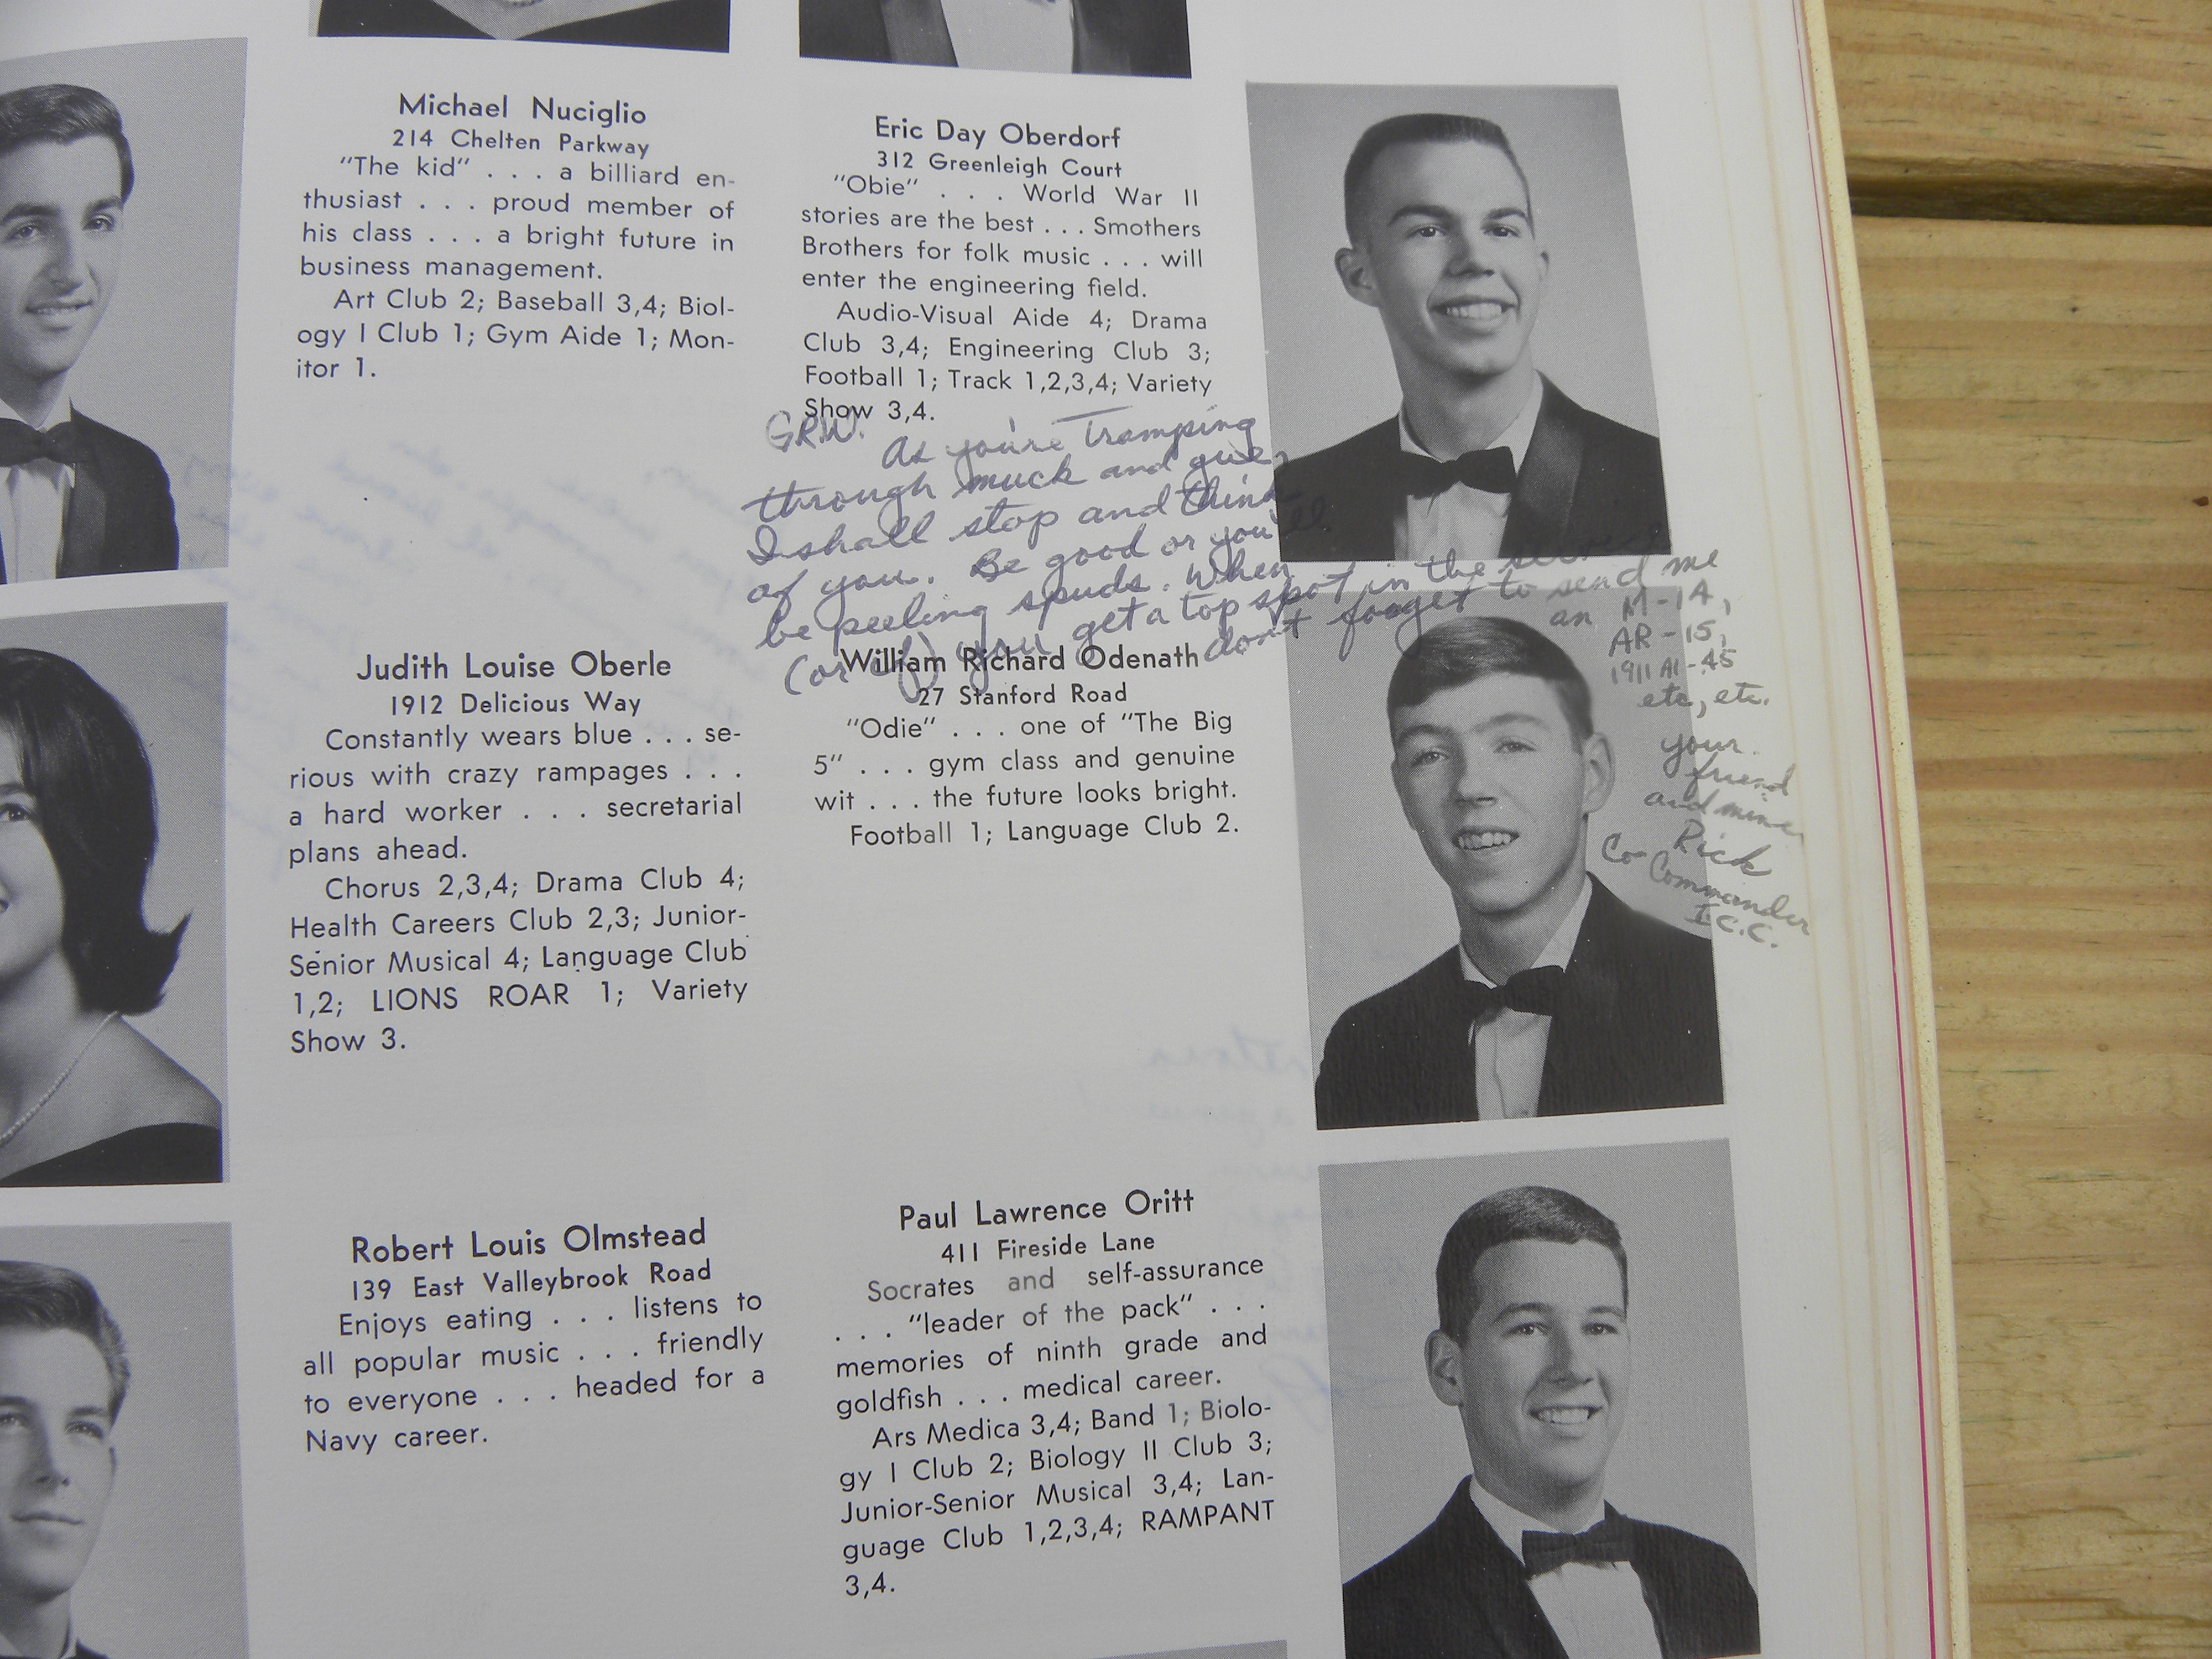 Michael Nuciglio
214 Chelten Parkway
"The kid" . . . a billiard en-
thusiast . . . proud member of
his class . . . a bright future in
business management.
Art Club 2; Baseball 3,4; Biol-
ogy I Club 1; Gym Aide 1; Mon-
itor 1.
Eric Day Oberdorf
312 Greenleigh Court
"Obie" . . . World War II
stories are the best . . . Smothers
Brothers for folk music . . . will
enter the engineering field.
Audio-Visual Aide 4; Drama
Club 3,4; Engineering Club 3;
Football 1; Track 1,2,3,4; Variety
Show 3,4.
G.R.W.
As you're tramping
through muck and
I shall stop and think
of you. Be good or you'll
be peeling spuds. When
(or if) you get a top spot in the
don't forget to send me
an M-14,
AR-15,
1911 A1-45
etc, etc.
your
friend
and mine
Rick
Co-Commander
I.C.C.
Judith Louise Oberle
1912 Delicious Way
Constantly wears blue . . . se-
rious with crazy rampages . . .
a hard worker . . . secretarial
plans ahead.
Chorus 2,3,4; Drama Club 4;
Health Careers Club 2,3; Junior-
Senior Musical 4; Language Club
1,2; LIONS ROAR 1; Variety
Show 3.
William Richard Odenath
27 Stanford Road
"Odie" . . . one of "The Big
5" . . . gym class and genuine
wit . . . the future looks bright.
Football 1; Language Club 2.
Robert Louis Olmstead
139 East Valleybrook Road
Enjoys eating . . . listens to
all popular music . . . friendly
to everyone . . . headed for a
Navy career.
Paul Lawrence Oritt
411 Fireside Lane
Socrates and self-assurance
. . . "leader of the pack" . . .
memories of ninth grade and
goldfish . . . medical career.
Ars Medica 3,4; Band 1; Biolo-
gy I Club 2; Biology II Club 3;
Junior-Senior Musical 3,4; Lan-
guage Club 1,2,3,4; RAMPANT
3,4.